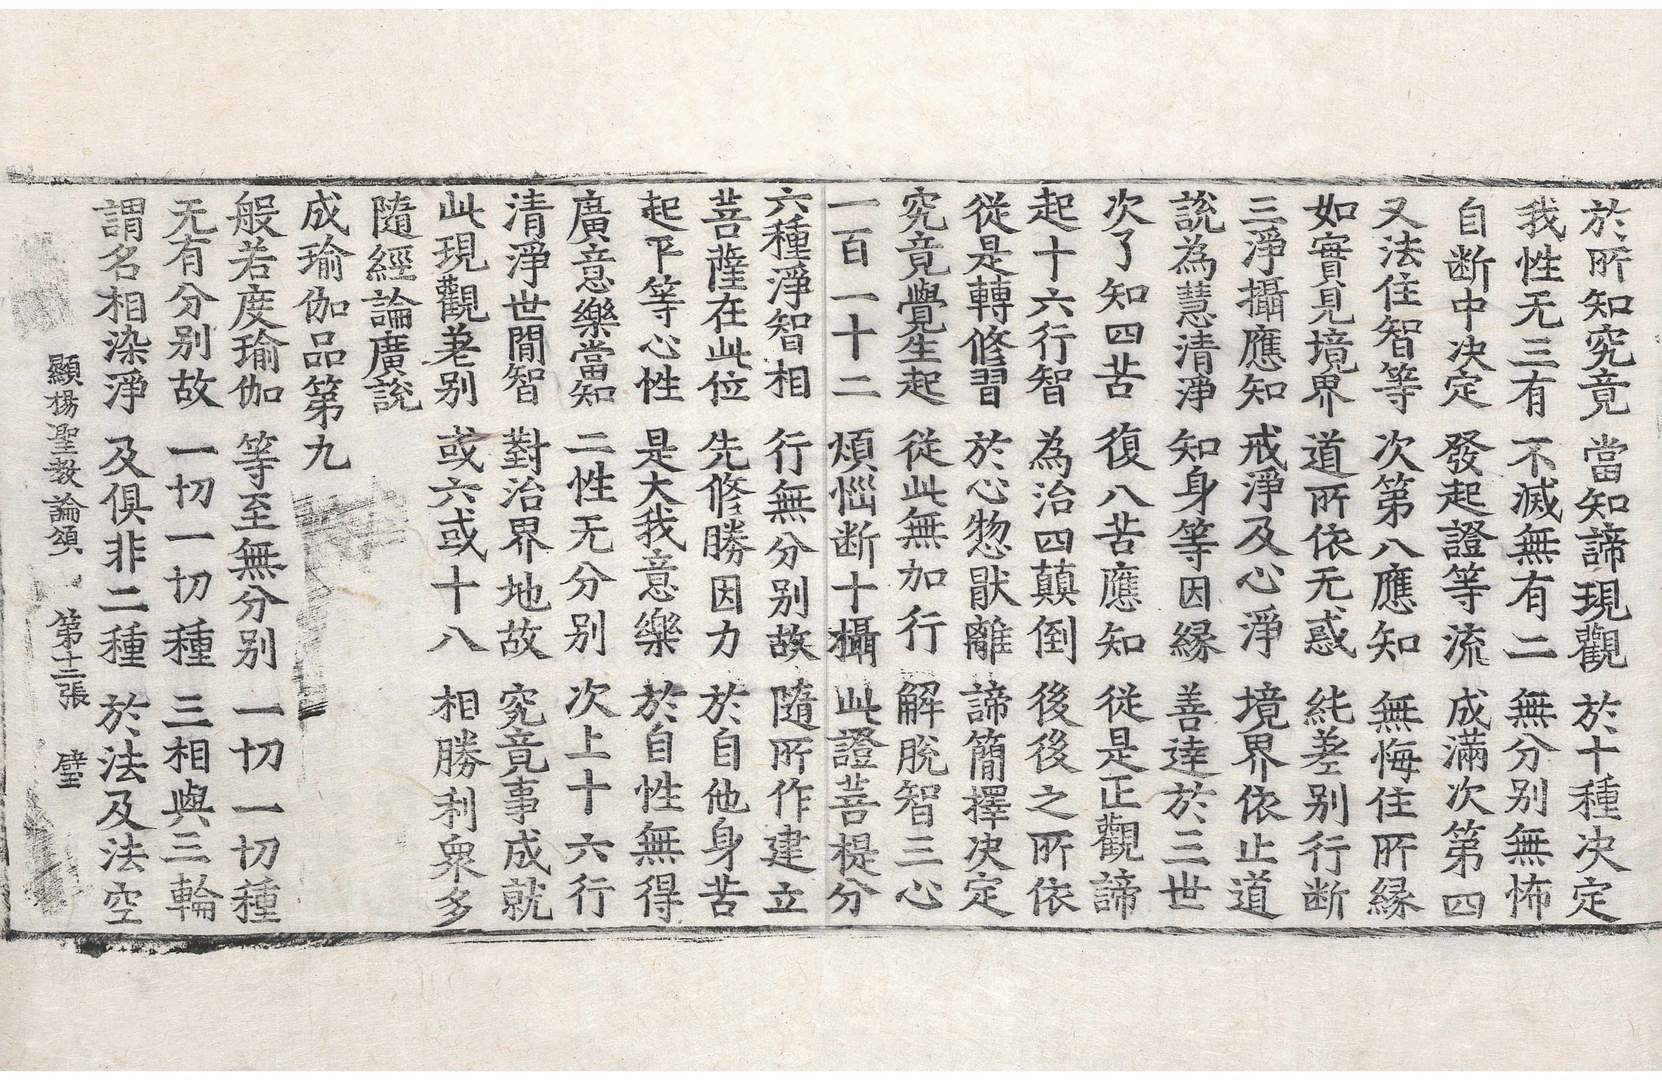 於所知究竟 當知諦現觀 於十種决定
我性无三有 不滅無有二 無分别無怖
自断中决定 發起證等流 成滿次第四
又法住智等 次第八應知 無悔住所緣
如實見境界 道所依无惑 純差别行断
三淨攝應知 戒淨及心淨 境界依止道
說為慧清淨 知身等因縁 善達於三世
次了知四苦 復八苦應知 從是正觀諦
起十六行智 為治四顛倒 後後之所依
從是轉修習 於心惣猒離 諦簡擇决定
究竟覺生起 從此無加行 解脫智三心
一百一十二 煩惱断十攝 此證菩提分
六種淨智相 行無分别故 隨所作建立
菩薩在此位 先修勝因力 於自他身苦
起平等心性 是大我意樂 於自性無得
廣意樂當知 二性无分别 次上十六行
清淨世間智 對治界地故 究竟事成就
此現觀差别 或六或十八 相勝利衆多
隨經論廣說
成瑜伽品第九
般若度瑜伽 等至無分别 一切一切種
无有分别故 一切一切種 三相與三輪
謂名相染淨 及俱非二種 於法及法空
顯揚聖教論頌 第十二張 璧